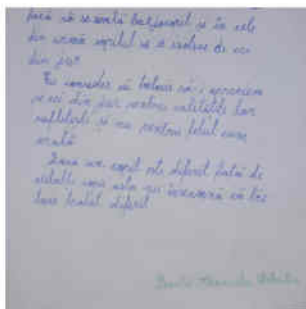 fară să se simtă batjocorit și în cele
din urmă copilul să se izoleze de cei
din jur.
Eu consider că trebuie să-i apreciem
pe cei din jur pentru calitățile lor
sufletești și nu pentru felul cum
arată.
Dacă un copil este diferit față de
celalți asta nu înseamnă că
trebuie tratat diferit.